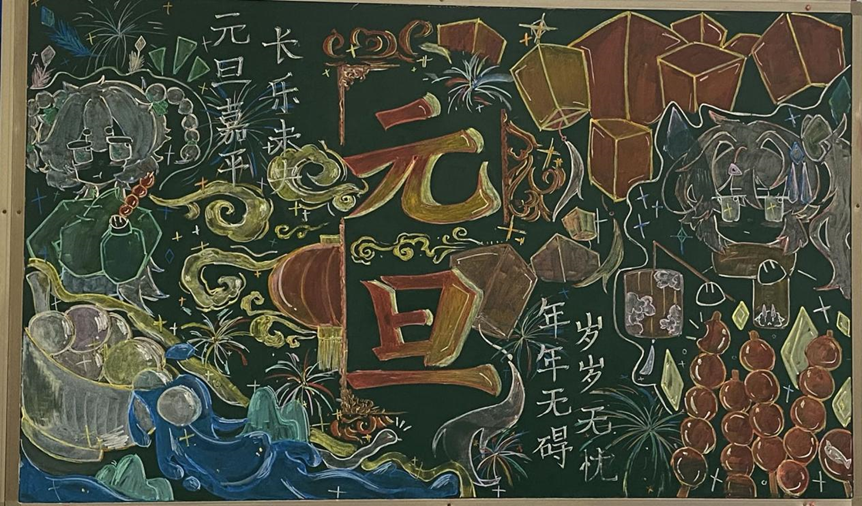 长乐未央
元旦嘉平
元旦
岁岁无忧
年年无碍